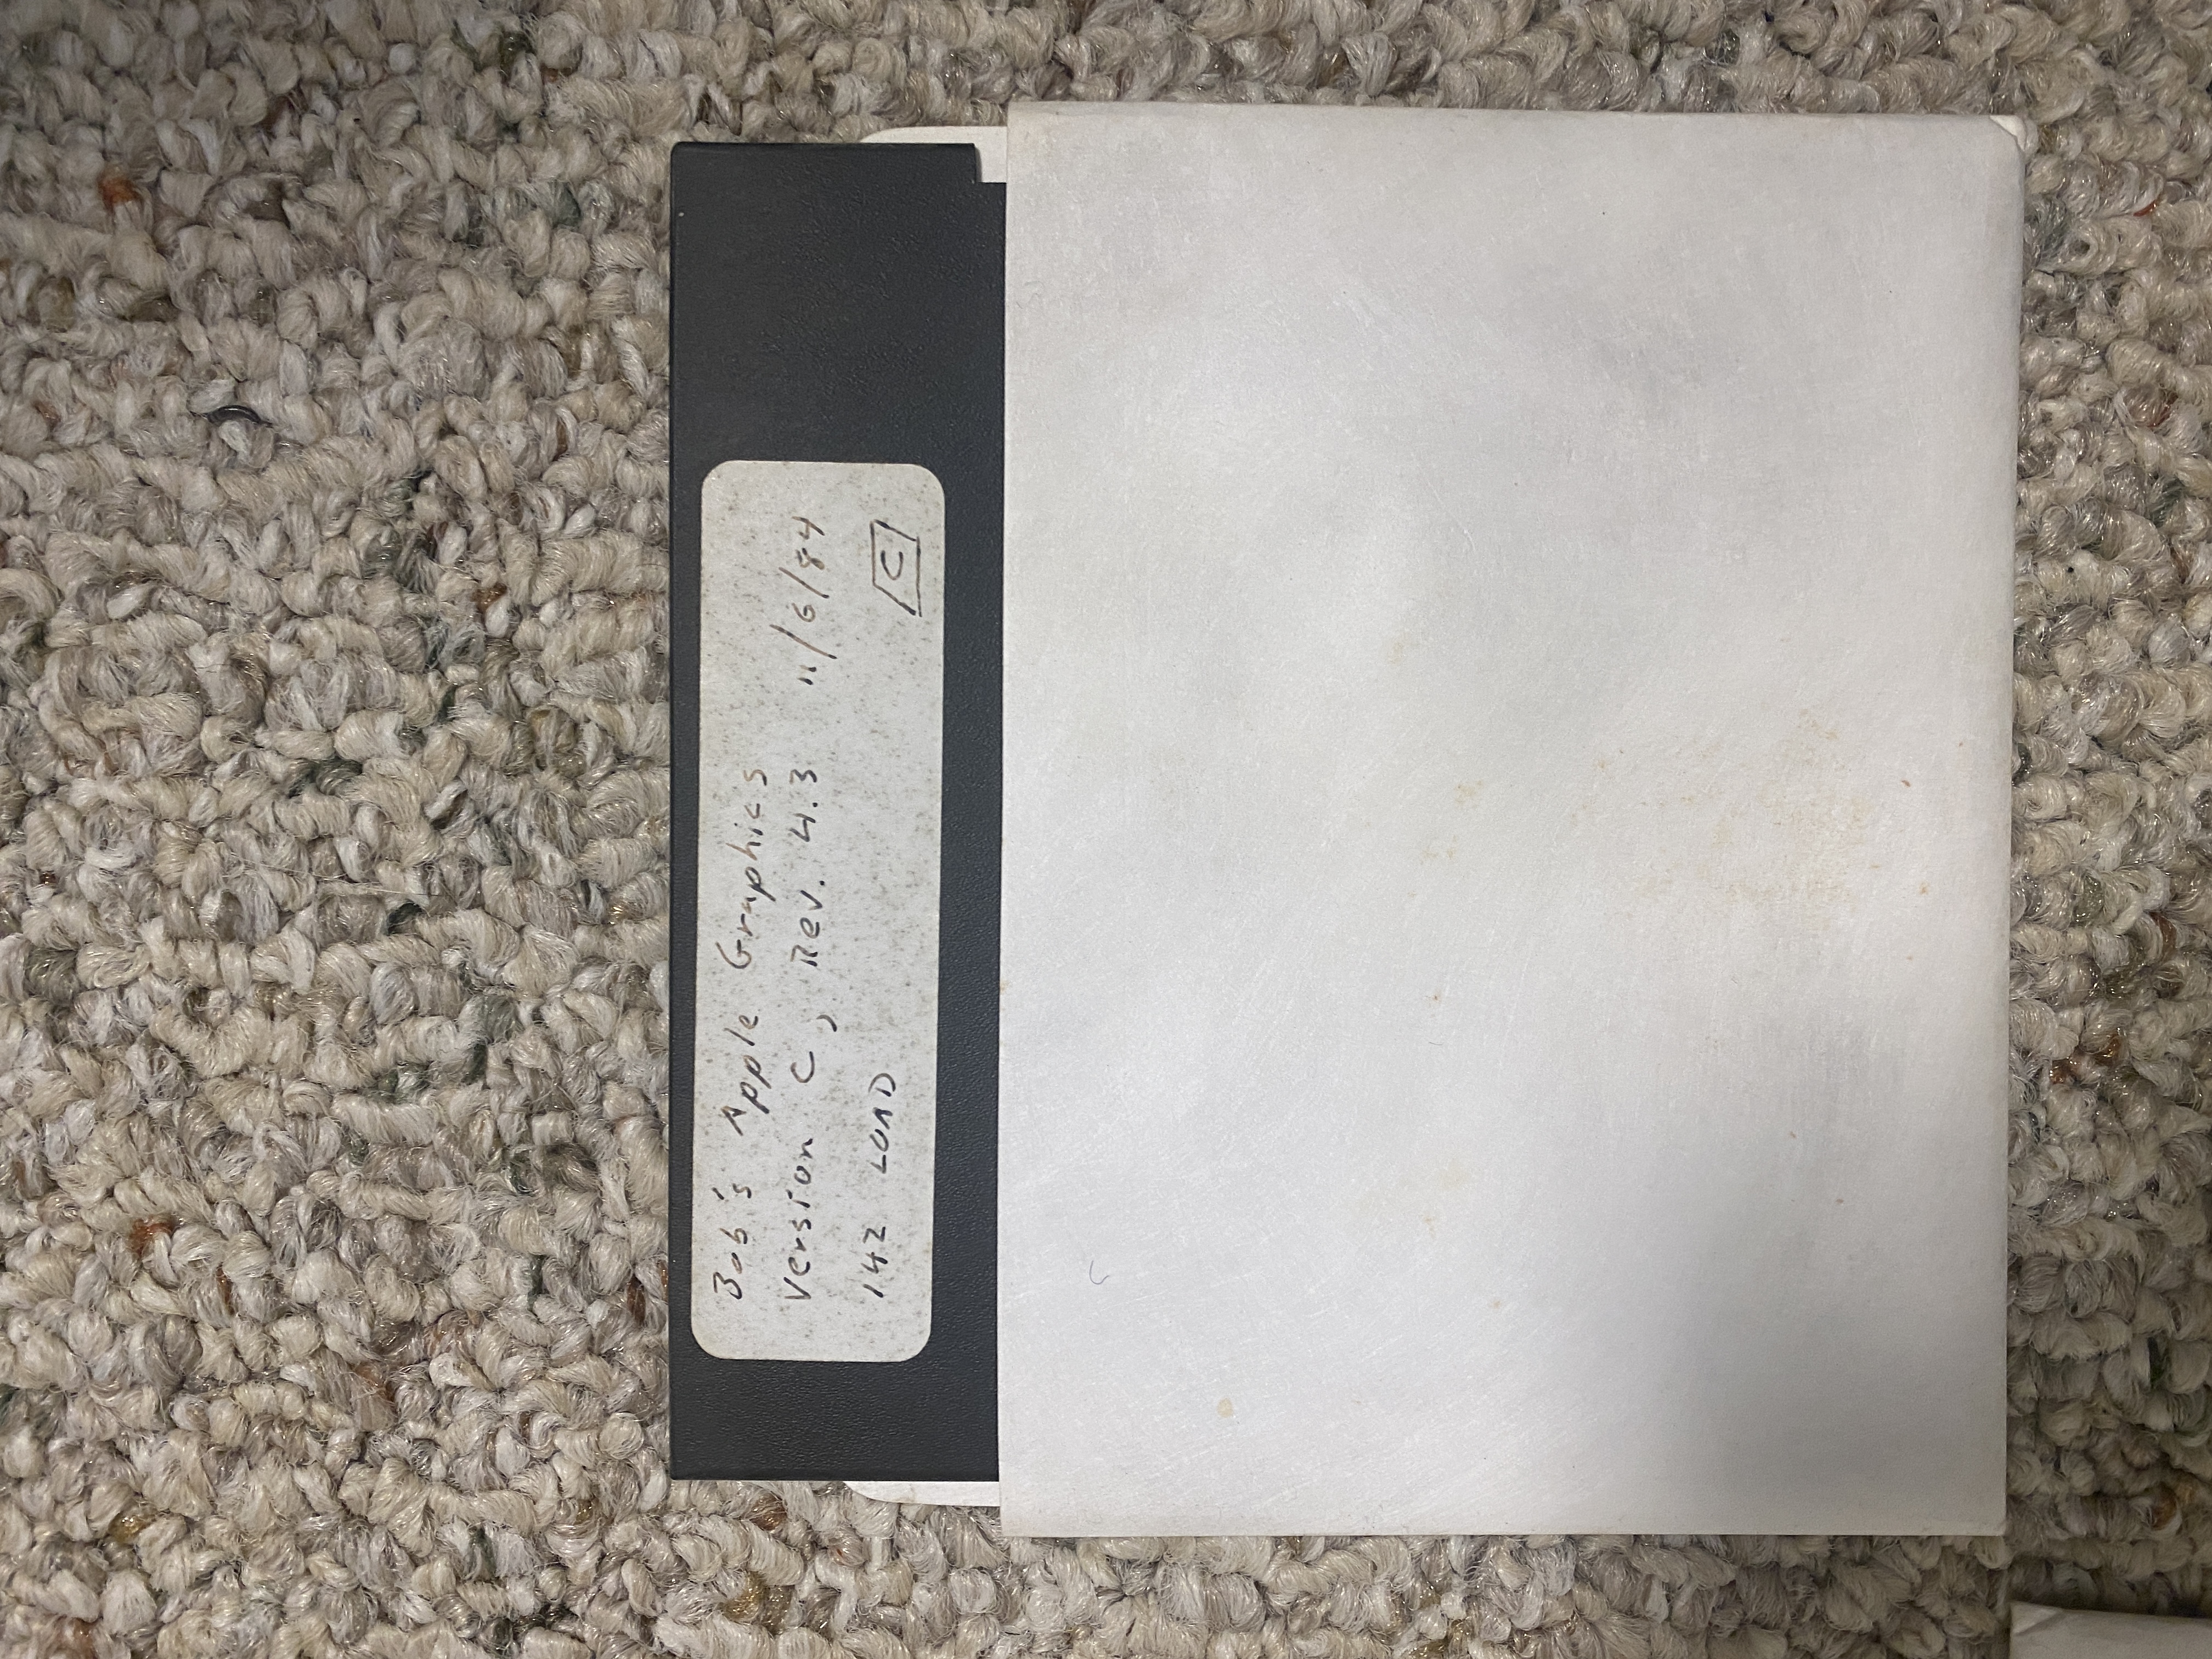 Bob's Apple Graphics
Version C, Rev. 4.3 11/6/84
142 LOAD C